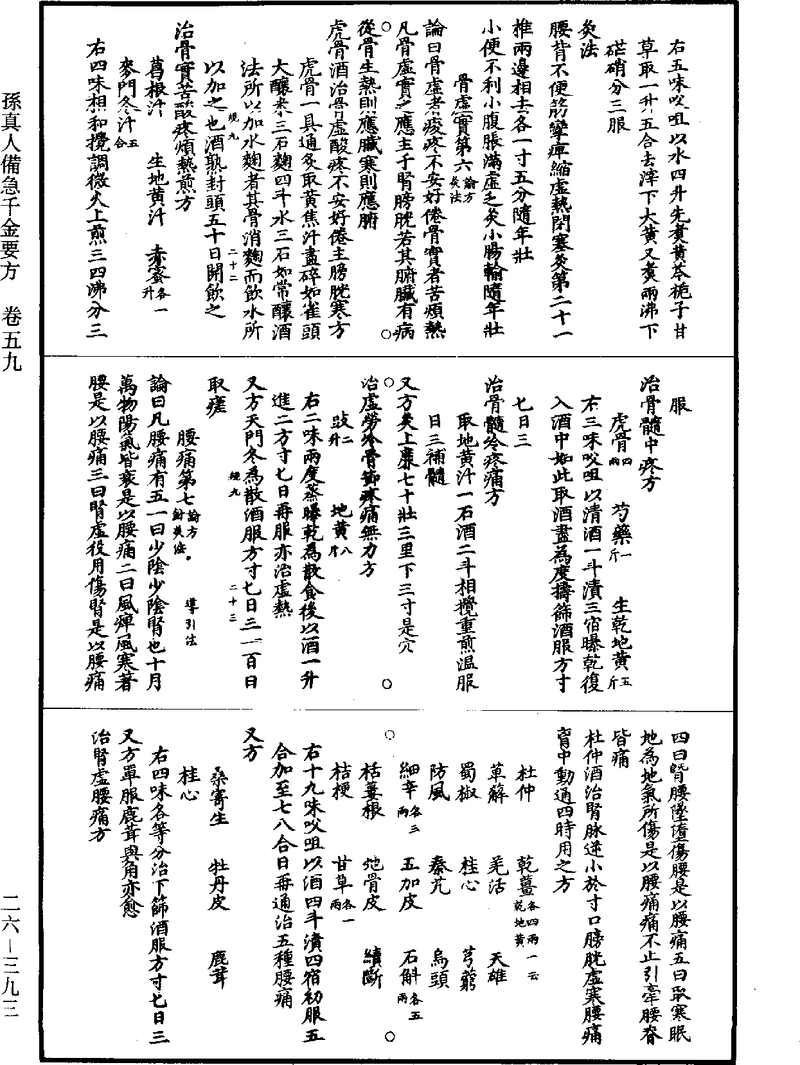 孫真人備急千金要方　卷五九
右五味㕮咀以水四升先煑黄芩梔子甘
草取一升五合去滓下大黄又煑兩沸下
硭硝分三服
灸法
腰背不便筋攣痺縮虛熱閉塞灸第二十一
椎兩邊相去各一寸五分隨年壯
小便不利小腹脹滿虛乏灸小腸輸隨年壯
骨虛實第六論方灸法
論曰骨虛者痠疼不安好倦骨實者苦煩熱
凡骨虛實之應主于腎膀胱若其腑臟有病
從骨生熱則應臟寒則應腑
虎骨酒治骨虛酸疼不安好倦主膀胱寒方
虎骨一具通灸取黄焦汁盡碎如雀頭
大釀米三石麴四斗水三石如常釀酒
法所以加水麴者其骨消麴而飲水所
以加之也酒熟封頭五十日開飲之
規九　二十二
治骨實苦酸疼煩熱煎方
葛根汁　生地黄汁　赤蜜各一升
麥門冬汁五合
右四味相和攪調微火上煎三四沸分三
服
治骨髓中疼方
虎骨四兩　芍藥一斤　生乾地黄五斤
右三味㕮咀以清酒一斗漬三宿曝乾復
入酒中如此取酒盡為度擣篩酒服方寸
七日三
治骨髓冷疼痛方
取地黄汁一石酒二斗相攪重煎温服
日三補髓
又方灸上廉七十壯三里下三寸是穴
治虛勞冷骨節疼痛無力方
豉二升　地黄八斤
右二味兩度蒸曝乾為散食後以酒一升
進二方寸七日再服亦治虛熱
又方天門冬為散酒服方寸七日三一百日
規九　二十三
取瘥
腰痛第七論方針灸法　導引法
論曰凡腰痛有五一曰少陰少陰腎也十月
萬物陽氣皆衰是以腰痛二曰風痺風寒著
腰是以腰痛三曰腎虛役用傷腎是以腰痛
四曰䐴腰墜墮傷腰是以腰痛五曰取寒眠
地為地氣所傷是以腰痛痛不止引牽腰脊
皆痛
杜仲酒治腎脉逆小於寸口膀胱虛寒腰痛
胷中動通四時用之方
杜仲　乾薑各四兩一云乾地黄
萆薢　羌活　天雄
蜀椒　桂心　芎藭
防風　秦艽　烏頭
細辛各三兩　五加皮　石斛各五兩
栝蔞根　地骨皮　續斷
桔梗　甘草各一兩
右十九味㕮咀以酒四斗漬四宿初服五
合加至七八合日再通治五種腰痛
又方
桑寄生　牡丹皮　鹿茸
桂心
右四味各等分治下篩酒服方寸七日三
又方單服鹿茸與角亦愈
治腎虛腰痛方
二六—三九三